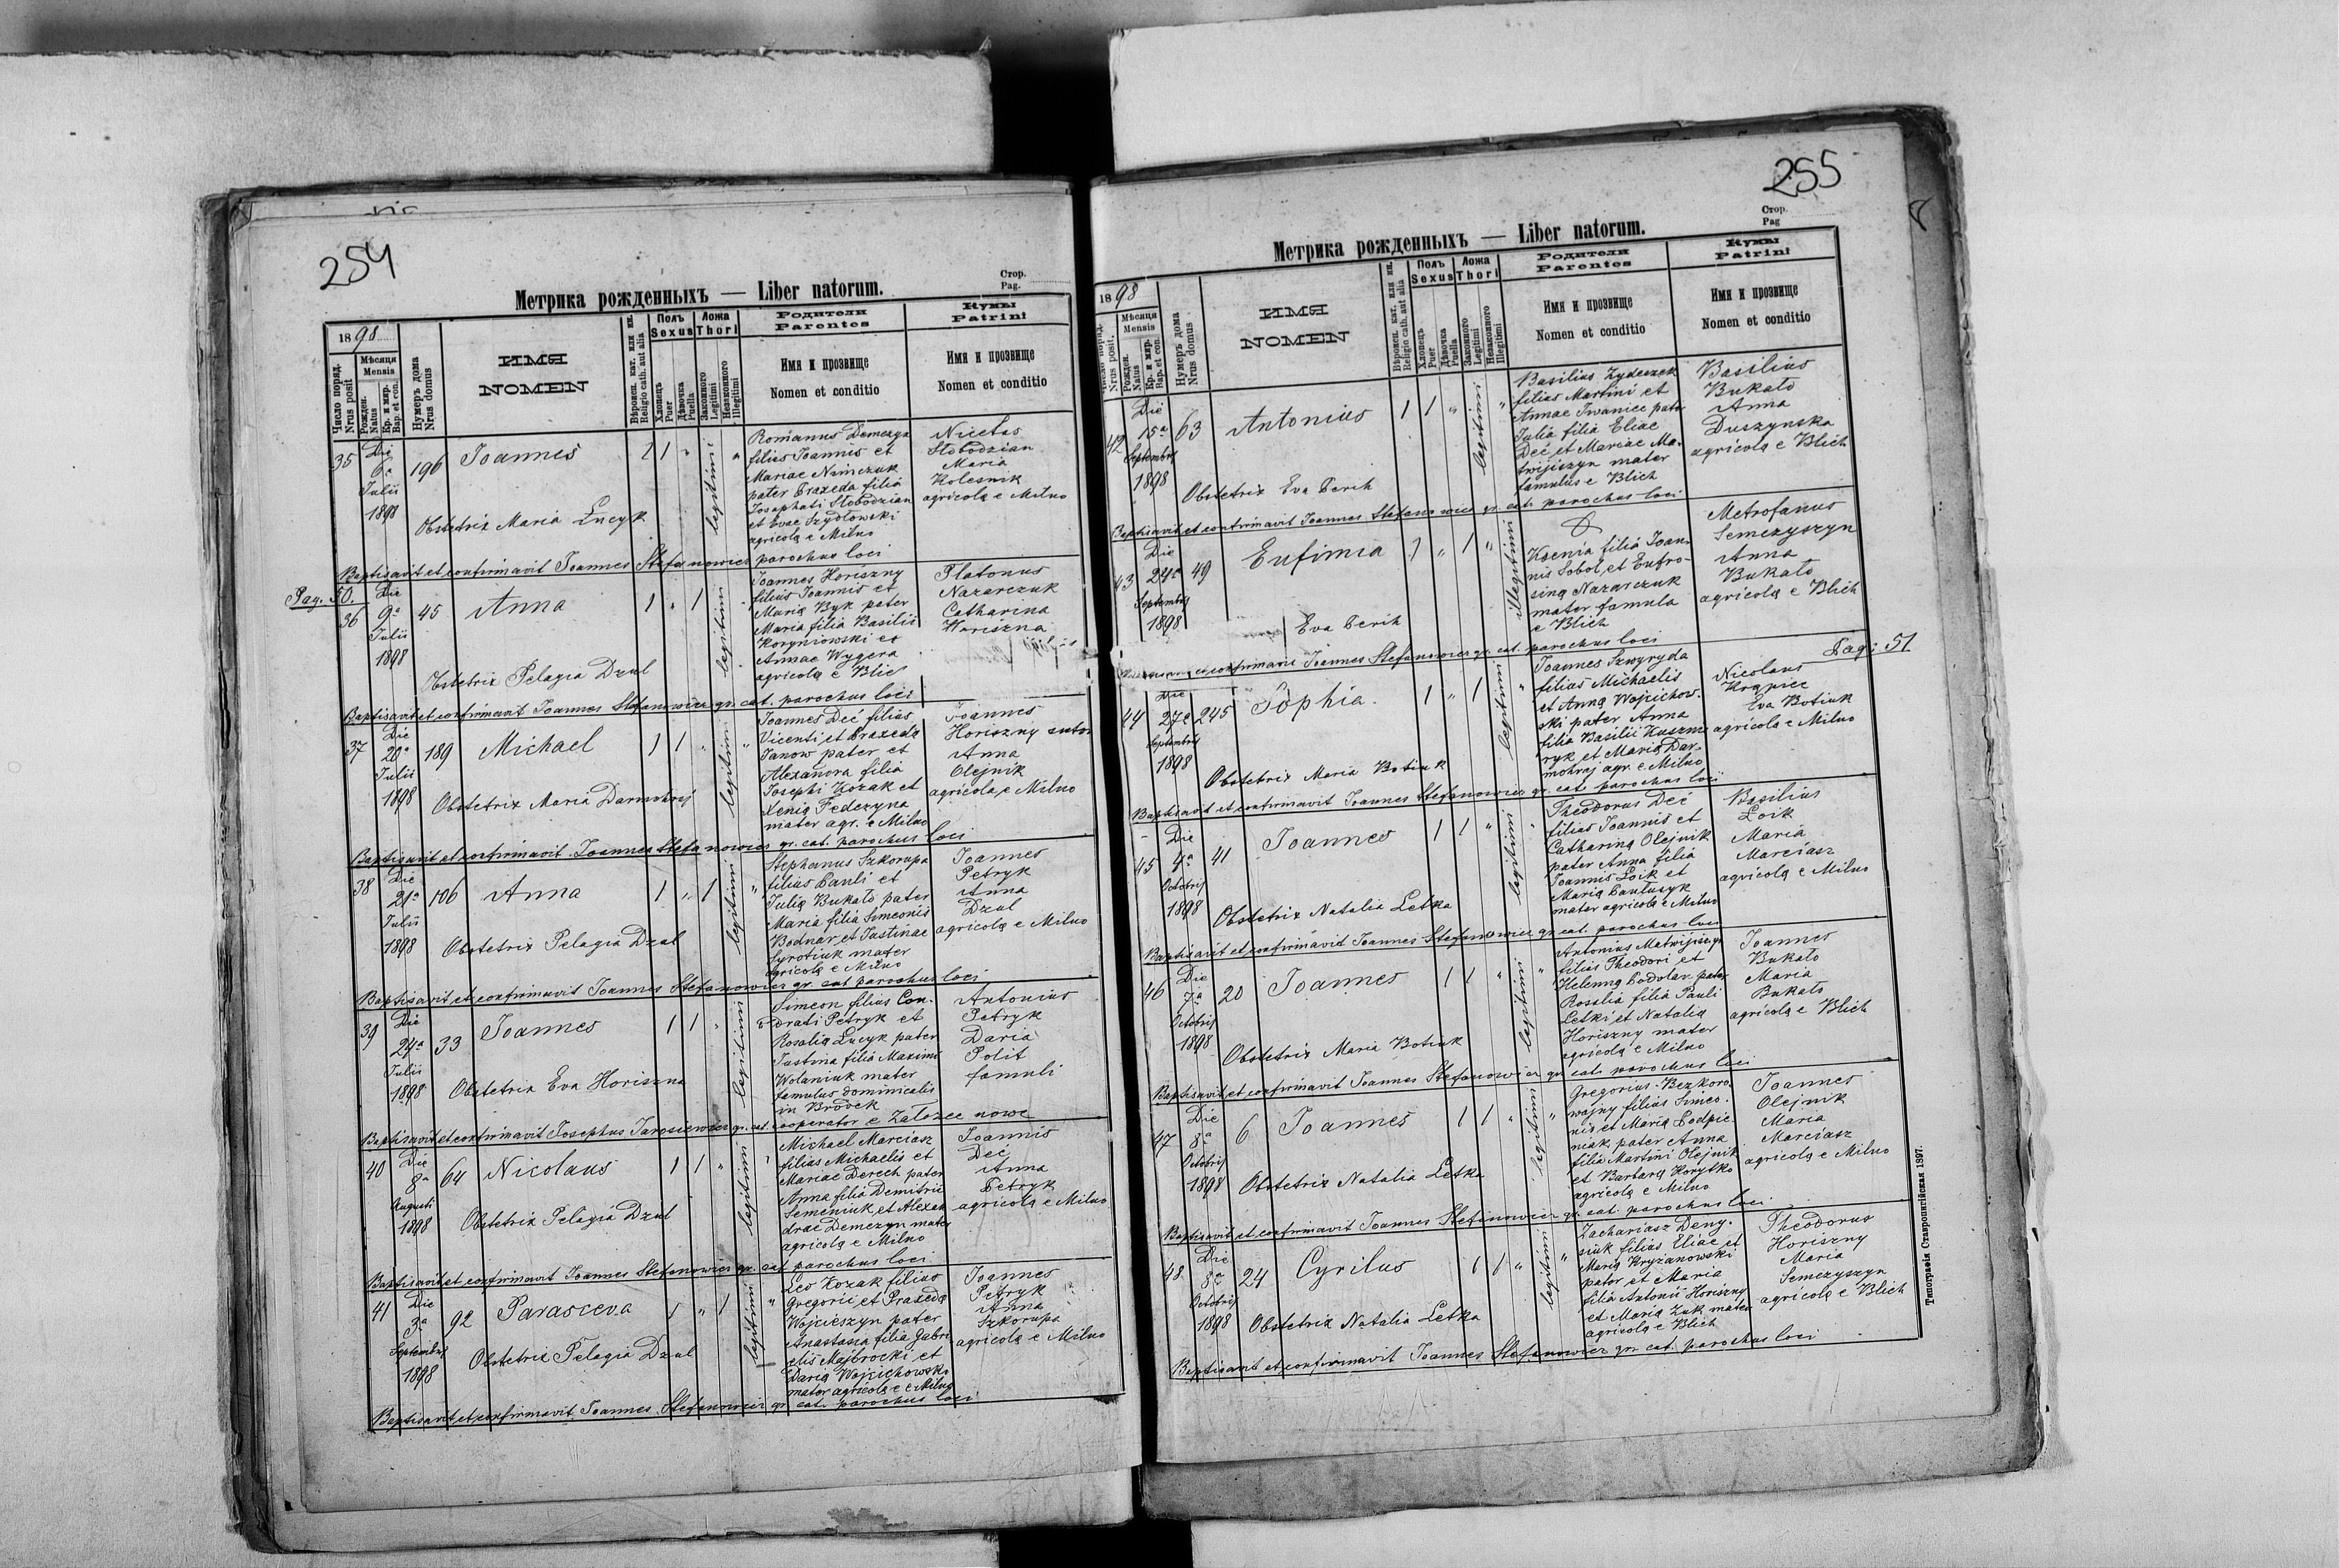 254
Стор.
Pag.
Метрика рожденныхъ — Liber natorum.
1898
Число поряд.
Nrus posit
Мѣсяця
Mensis
Рожден.
Natus
Кр. и мѵр.
Bap. et con.
Нумеръ дома
Nrus domus
ИМЯ
NOMEN
Вѣроисп. кат. или ин.
Religio cath. aut alia
Полъ
Sexus
Хлопецъ
Puer
Дѣвочка
Puella
Ложа
Thori
Законного
Legitimi
Незаконного
Illegitimi
Родители
Parentes
Имя и прозвище
Nomen et conditio
Кумы
Patrini
Имя и прозвище
Nomen et conditio
35
Die
6a
Julii
1898
196
Joannes
1 1 "
legitimi
"
Obstetrix Maria Łucyk
Romanus Demczyn
filius Joannis et
Mariae Nimczuk
pater Praxeda filia
Josaphati Słobodzian
et Evae Szydłowski
agricolą e Milno
Nicetas
Słobodzian
Maria
Kolesnik
agricolą e Milno
Baptisavit et confirmavit Joannes Stefanowicz parochus loci
Pag. 50.
36
Die
9a
Julii
1898
45
Anna
1 " 1
legitimi
Obstetrix Pelagia Dzul
Joannes Horiszny
filius Joannis et
Marią Byk pater
Maria filia Basilii
Koryniowski et
Annae Wygera
agricolą e Blic
Platonus
Nazarczuk
Catharina
Horiszna
Baptisavit et confirmavit Joannes Stefanowicz gr. cat. parochus loci
37
Die
20a
Julii
1898
189
Michael
1 1 "
legitimi
"
Obstetrix Maria Darmohraj
Joannes Deć filius
Vicenti et Praxeda
Janow pater et
Alexandra filia
Josephi Kozak et
Xenią Fedczyna
mater agr. e Milno
Joannes
Horiszny
Anna
Olejnik
agricola e Milno
Baptisavit et confirmavit Joannes Stefanowicz gr. cat. parochus loci
38
Die
21a
Julii
1898
106
Anna
1 " 1
legitimi
"
Obstetrix Pelagia Dzul
Stephanus Szkorupa
filius Pauli et
Julią Bukało pater
Maria filia Simeonis
Bodnar et Justinae
Syrotiuk mater
agricolą e Milno
Joannes
Petryk
Anna
Dzul
agricolą e Milno
Baptisavit et confirmavit Joannes Stefanowicz gr. cat parochus loci
39
Die
24a
Julii
1898
33
Joannes
1 1 "
legitimi
Obstetrix Eva Horiszna
Simeon filius Con-
drati Petryk et
Rosalią Łucyk pater
Justina filia Maximi
Wolaniuk mater
famulus dominicalis
in Brodek
Antonius
Petryk
Daria
Polit
famuli
Baptisavit et confirmavit Josephus Jarosiewicz gr. cat. cooperator e Załozce nowe
40
Die
8a
Augusti
1898
64
Nicolaus
1 1 "
legitimi
"
Obstetrix Pelagia Dzul
Michael Marciasz
filius Michaelis et
Mariae Derech pater
Anna filia Demitrii
Semeniuk et Alexan
drae Demczyn mater
agricolą e Milno
Joannis
Dec
Anna
Petryk
agricolą e Milno
Baptisavit et confirmavit Joannes Stefanowicz gr. cat parochus loci
41
Die
3a
Septembris
1898
92
Parasceva
1 " 1
legitimi
"
Obstetrix Pelagia Dzul
Leo Kozak filius
Gregorii et Praxedą
Wojcieszyn pater
Anastasia filia Gabri
elis Majbrocki et
Darią Wojcichowski
mater agricolą e Milno
Joannes
Petryk
Anna
Szkorupa
agricolą e Milno
Baptisavit et confirmavit Joannes Stefanowicz gr. cat. parochus loci
255
Стор.
Pag
Метрика рожденныхъ — Liber natorum.
1898
Число поряд.
Nrus posit.
Мѣсяця
Mensis
Рожден.
Natus
Кр. и мѵр.
Bap. et con.
Нумеръ дома
Nrus domus
ИМЯ
NOMEN
Вѣроисп. кат. или ин.
Religio cath. aut alia
Полъ
Sexus
Хлопецъ
Puer
Дѣвочка
Puella
Ложа
Thori
Законного
Legitimi
Незаконного
Illegitimi
Родители
Parentes
Имя и прозвище
Nomen et conditio
Кумы
Patrini
Имя и прозвище
Nomen et conditio
42
Die
15a
Septembris
1898
63
Antonius
1 1 "
legitimi
"
Obstetrix Eva Perih
Basilius Zydeczek
filius Martini et
Annae Iwaniec pater
Julia filia Eliae
Deć et Mariae Ma-
twijiszyn mater
famulus e Blich
Basilius
Bukało
Anna
Duszynska
agricolą e Blich
Baptisavit et confirmavit Joannes Stefanowicz gr. cat. parochus loci
43
Die
24a
Septembris
1898
49
Eufimia
1 " 1 "
illegitimi
Eva Perih
Ksenia filia Joan-
nis Sobol et Eufro-
siną Nazarczuk
mater famula
e Blich
Metrofanus
Semczyszyn
Anna
Bukało
agricolą e Blich
confirmavit Joannes Stefanowicz gr. cat. parochus loci
Pag: 51
44
Die
27a
Septembris
1898
245
Sophia.
1 " 1
legitimi
"
Obstetrix Maria Botiuk
Joannes Szwyryda
filius Michaelis
et Anną Wojcichow-
ski pater Anna
filia Basilii Kuszne
ryk et Marią Dar-
mohraj agr. e Milno
Nicolaus
Krąpiec
Eva Botiuk
agricolą e Milno
Baptisavit et confirmavit Joannes Stefanowicz gr. cat. parochus loci
45
Die
4a
Octobris
1898
41
Joannes
1 1 "
legitimi
Obstetrix Natalia Letka
Theodorus Deć
filius Joannis et
Catharina Olejnik
pater Anna filia
Joannis Loik et
Marią Pawłusyk
mater agricolą e Milno
Basilius
Loik
Maria
Marciasz
agricolą e Milno
Baptisavit et confirmavit Joannes Stefanowicz gr. cat. parochus loci
46
Die
7a
Octobris
1898
20
Joannes
1 1 "
legitimi
"
Obstetrix Maria Botiuk
Antonius Matwijiszyn
filius Theodori et
Helenną Podolan pater
Rosalia filia Pauli
Letki et Natalią
Horiszny mater
agricolą e Milno
Joannes
Bukało
Maria
Bukało
agricolą e Blich
Baptisavit et confirmavit Joannes Stefanowicz gr. cat. parochus loci
47
Die
8a
Octobris
1898
6
Joannes
1 1 "
legitimi
"
Obstetrix Natalia Letka
Gregorius Bezkoro
wajny filius Simeo-
nis et Marią Podpie-
niak pater Anna
filia Martini Olejnik
et Barbarą Korytko
agricolą e Milno
Joannes
Olejnik
Maria
Marciasz
agricolą e Milno
Baptisavit et confirmavit Joannes Stefanowicz gr. cat. parochus loci
48
Die
8a
Octobris
1898
24
Cyrilus
1 1 "
legitimi
"
Obstetrix Natalia Letka
Zachariasz Deny-
siuk filius Eliae et
Marią Kryzanowski
pater et Maria
filia Antonii Horiszny
et Marią Zuk mater
agricolą e Blich
Theodorus
Horiszny
Maria
Semczyszyn
agricolą e Blich
Baptisavit et confirmavit Joannes Stefanowicz gr. cat. parochus loci
Типографія Ставропигійская 1897.